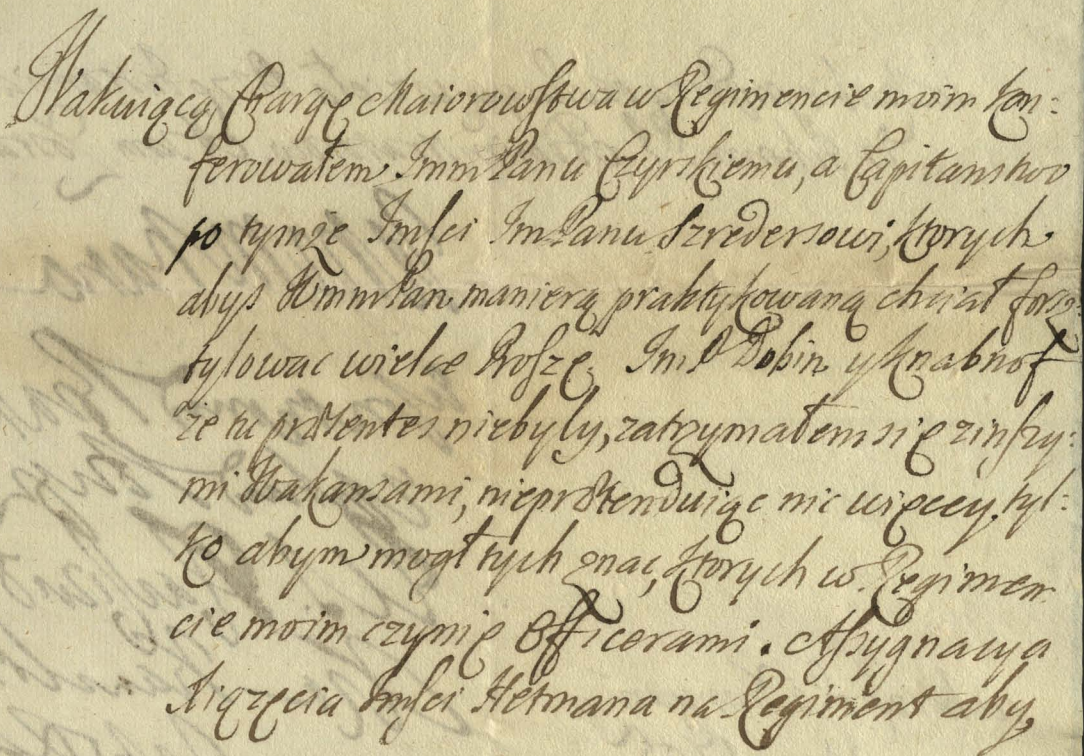 Wakuiącą Chargę Maiorowstwa w Regimencie moim kon:
ferowałem Jmm Panu Czyrskiemu, a Capitanstwo
po tymże Jmsci Jm Panu Szredersowi, ktorych
abys Wmm Pan manierą praktykowaną chciał forsz:
tylowac wielce Proszę. Jm P Dobin y Knabnof
że tu præsentes niebyly, zatrzymałem się z inszy:
mi Wakansami, nieprætenduiąc nic więcey, tyl:
ko abym mogł tych znac, ktorych w Regimen
cie moim czynię Officerami. Assygnacya
Xiązęcia Jmsci Hetmana na Regiment aby